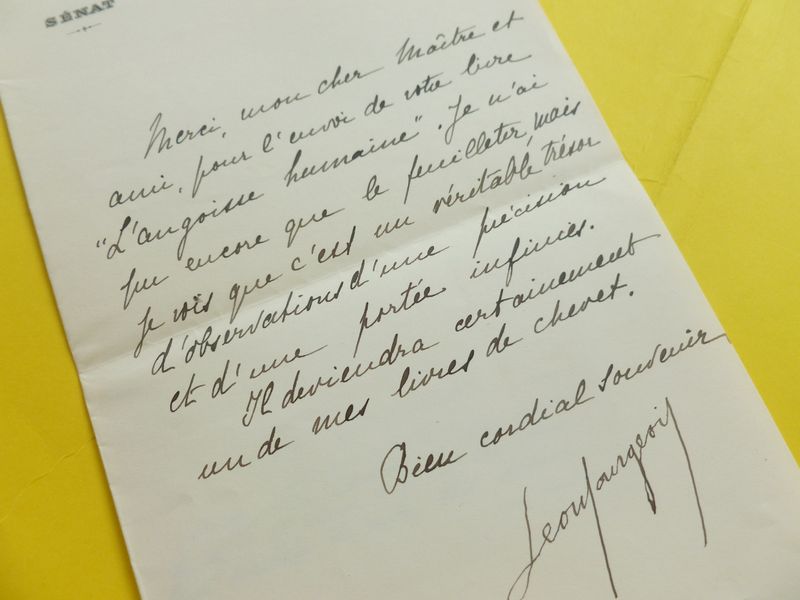 SÉNAT
Merci, mon cher Maître et
ami, pour l'envoi de votre livre
"L'angoisse humaine". Je n'ai
pu encore que le feuilleter, mais
je vois que c'est un véritable trésor
d'observations d'une précision
et d'une portée infinies.
Il deviendra certainement
un de mes livres de chevet.
Bien cordial souvenir
Léon Bourgeois